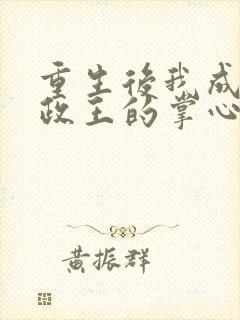 重生後我成
政王的掌心
黃振群